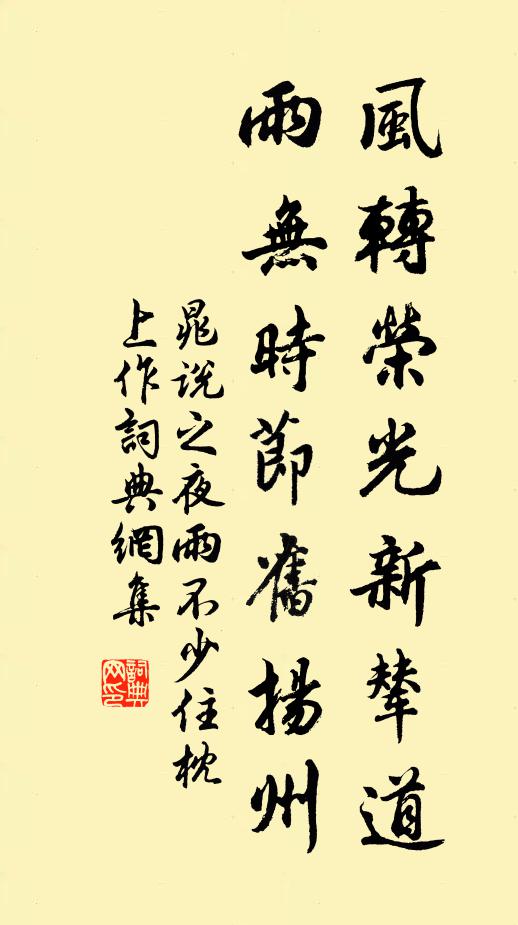 風轉榮光新輦道
雨無時節舊揚州
晁說之夜雨不少住枕
上作詞典網集
詞典網印